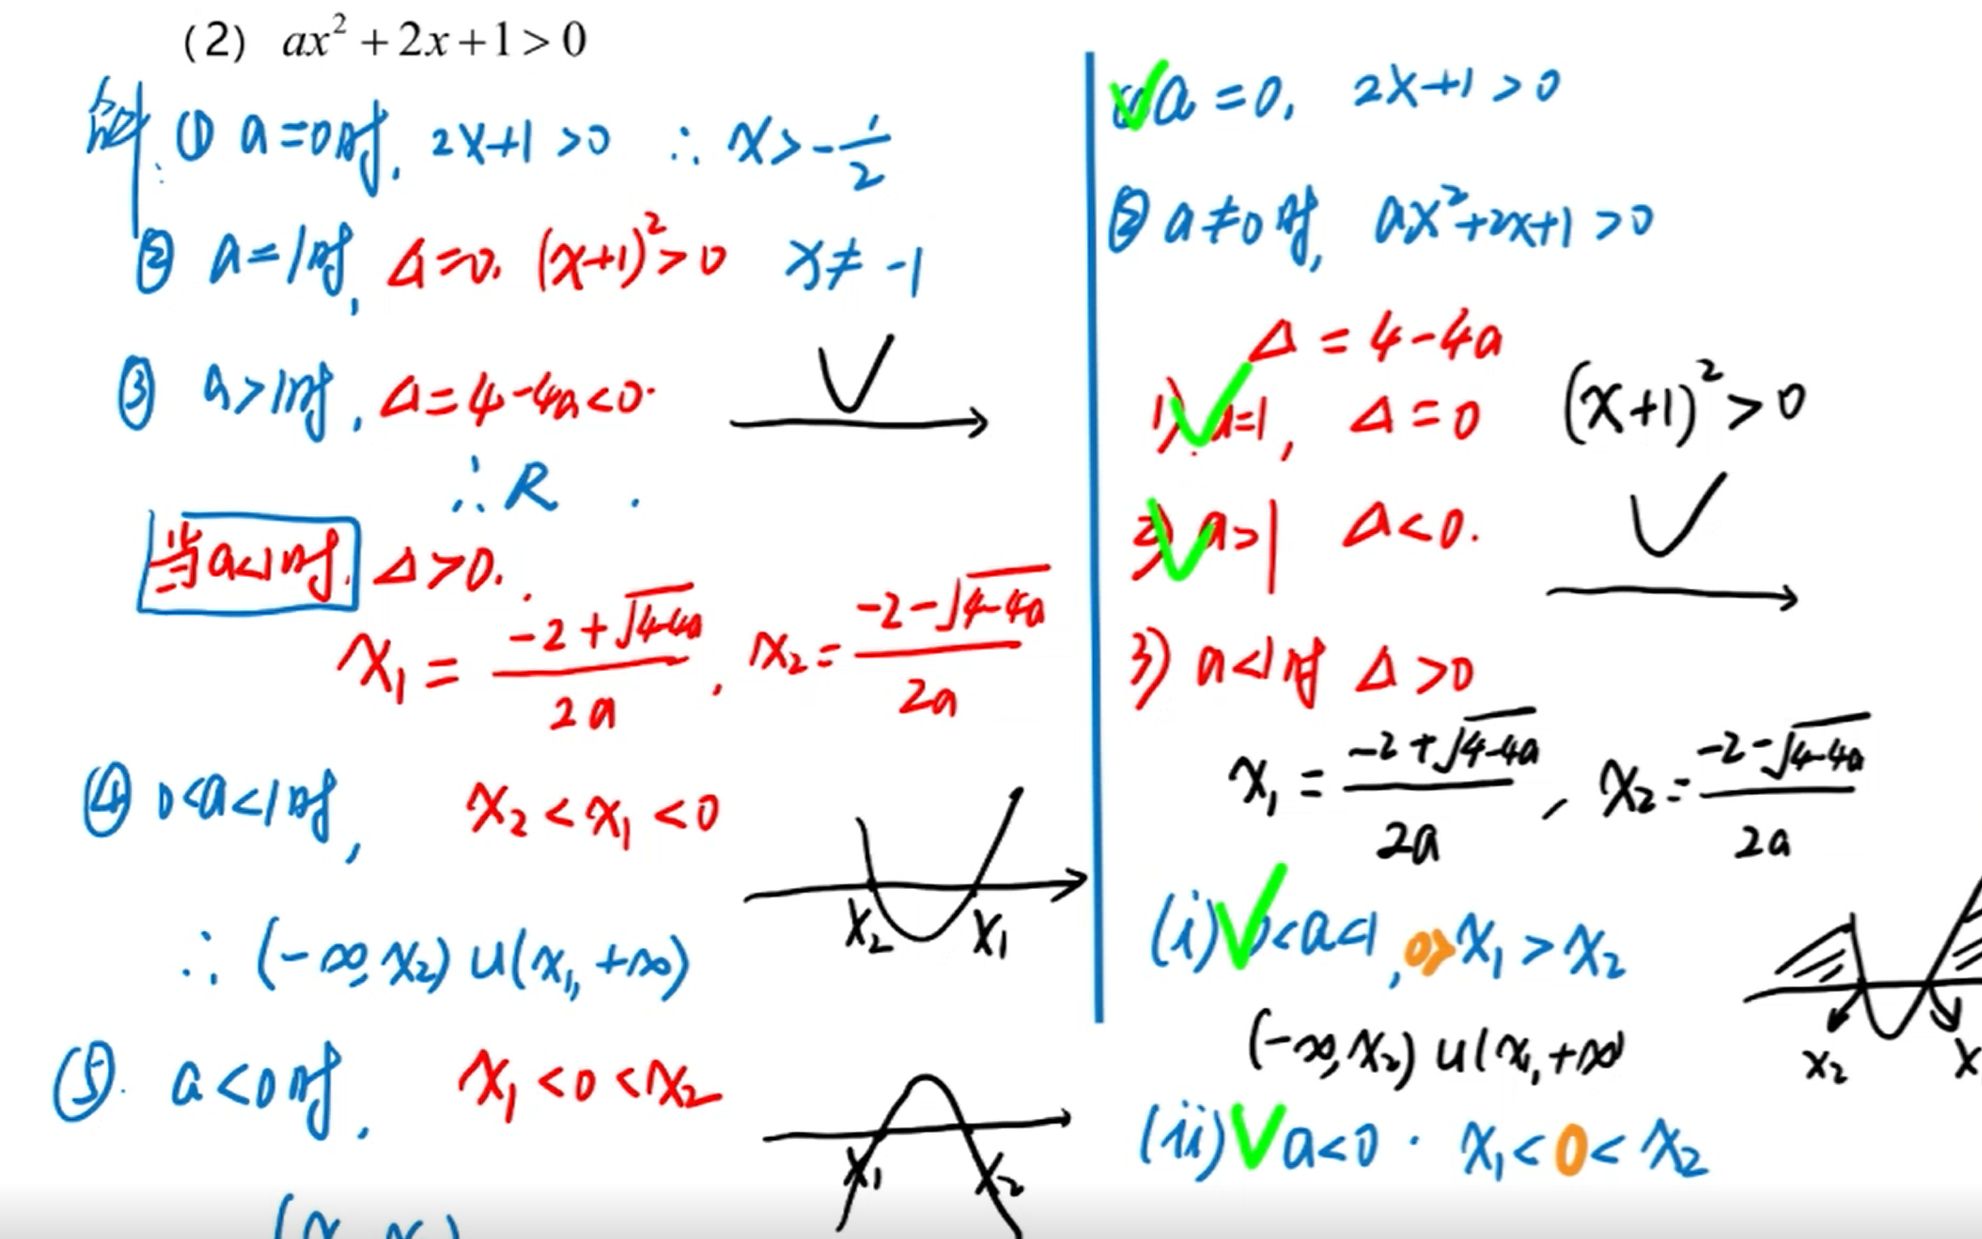 (2) ax²+2x+1>0
解: ① a=0时, 2x+1>0 ∴ x>-1/2
② a=1时, Δ=0. (x+1)²>0 x≠-1
③ a>1时, Δ=4-4a<0.
∴ R.
当a<1时. Δ>0.
x₁=(-2+√(4-4a))/2a, x₂=(-2-√(4-4a))/2a
④ 0<a<1时, x₂<x₁<0
x₂ x₁
∴ (-∞, x₂)∪(x₁, +∞)
⑤. a<0时, x₁<0<x₂
x₁ x₂
a=0, 2x+1>0
② a≠0时, ax²+2x+1>0
Δ=4-4a
1) a=1, Δ=0 (x+1)²>0
2) a>1 Δ<0.
3) a<1时 Δ>0
x₁=(-2+√(4-4a))/2a, x₂=(-2-√(4-4a))/2a
(i) 0<a<1, 0>x₁>x₂
(-∞, x₂)∪(x₁, +∞)
x₂
(ii) a<0. x₁<0<x₂